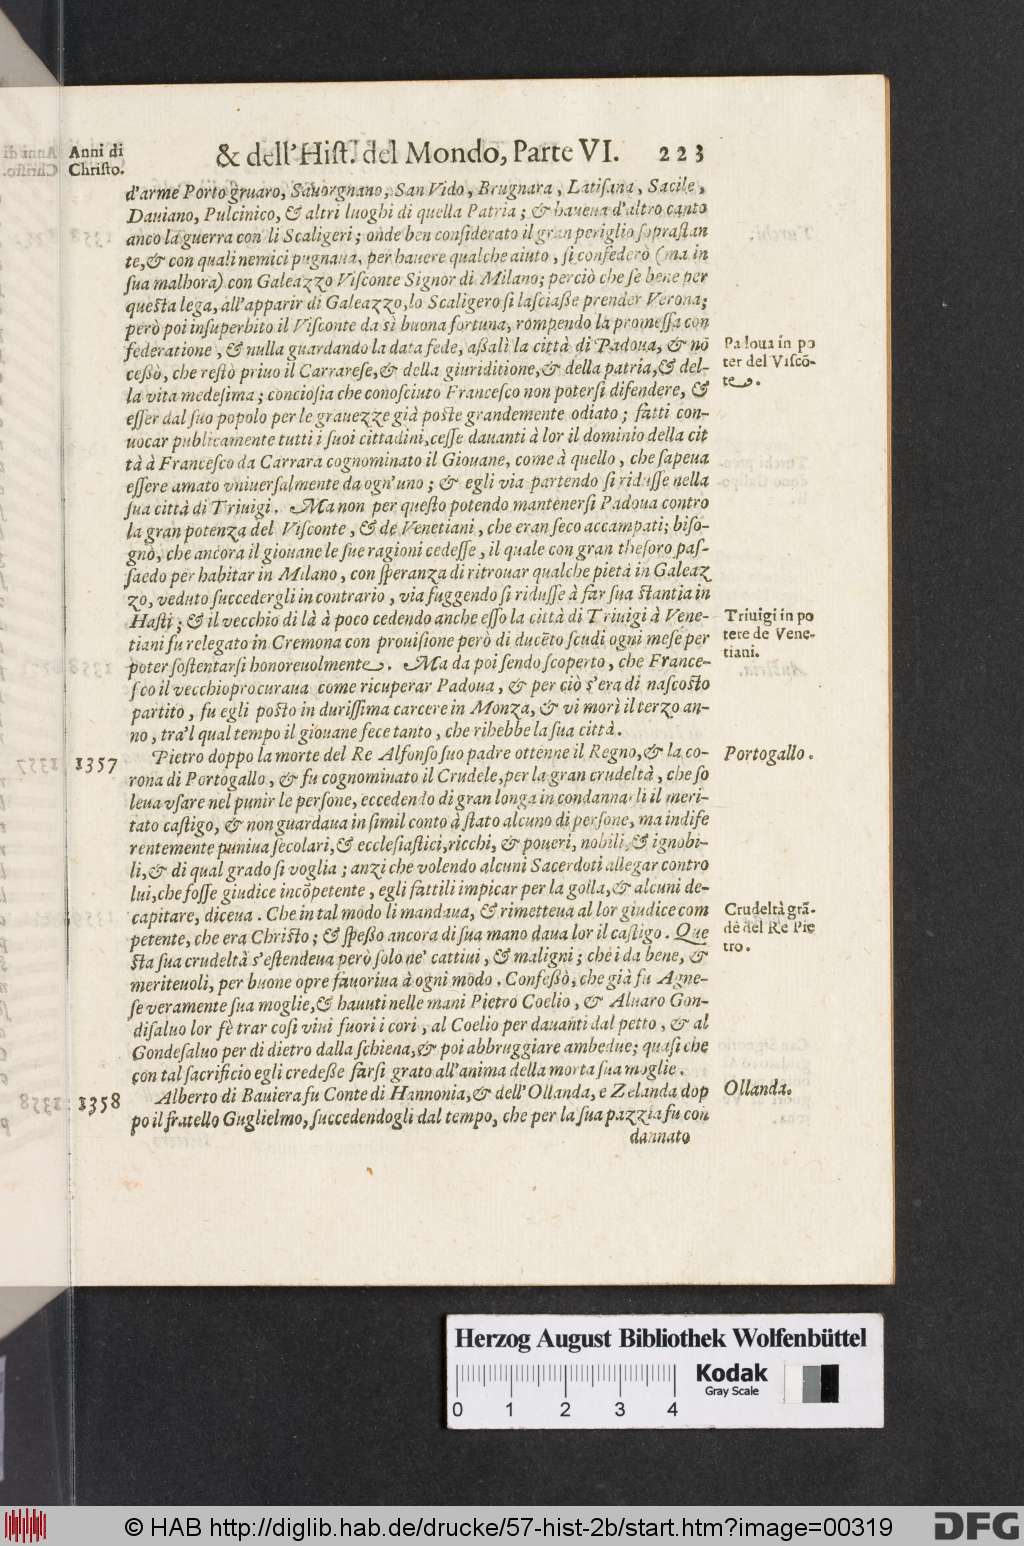 Anni di
Christo.
& dell'Hist. del Mondo, Parte VI. 223
d'arme Porto gruaro, Sauorgnano, San Vido, Brugnara, Latisana, Sacile,
Dauiano, Pulcinico, & altri luoghi di quella Patria; & haueua d'altro canto
anco la guerra con li Scaligeri; onde ben considerato il gran periglio soprastan
te, & con quali nemici pugnaua, per hauere qualche aiuto, si confederò (ma in
sua malhora) con Galeazzo Visconte Signor di Milano; perciò che se bene per
questa lega, all'apparir di Galeazzo, lo Scaligero si lasciasse prender Verona;
però poi insuperbito il Visconte da sì buona fortuna, rompendo la promessa con
federatione, & nulla guardando la data fede, assalì la città di Padoua, & nō
cessò, che restò priuo il Carrarese, & della giuriditione, & della patria, & del-
la vita medesima; conciosia che conosciuto Francesco non potersi difendere, &
esser dal suo popolo per le grauezze già poste grandemente odiato; fatti con-
uocar publicamente tutti i suoi cittadini, cesse dauanti à lor il dominio della cit
tà à Francesco da Carrara cognominato il Giouane, come à quello, che sapeua
essere amato vniuersalmente da ogn'uno; & egli via partendo si ridusse nella
sua città di Triuigi. Ma non per questo potendo mantenersi Padoua contro
la gran potenza del Visconte, & de Venetiani, che eran seco accampati; biso-
gnò, che ancora il giouane le sue ragioni cedesse, il quale con gran thesoro pas-
saedo per habitar in Milano, con speranza di ritrouar qualche pietà in Galeaz
zo, veduto succedergli in contrario, via fuggendo si ridusse à far sua stantia in
Hasti; & il vecchio di là à poco cedendo anche esso la città di Triuigi à Vene-
tiani fu relegato in Cremona con prouisione però di ducēto scudi ogni mese per
poter sostentarsi honoreuolmente. Ma da poi sendo scoperto, che France-
sco il vecchio procuraua come ricuperar Padoua, & per ciò s'era di nascosto
partito, fu egli posto in durissima carcere in Monza, & vi morì il terzo an-
no, tra'l qual tempo il giouane fece tanto, che rihebbe la sua città.
Padoua in po
ter del Viscō-
te.
Triuigi in po
tere de Vene-
tiani.
1357
Pietro doppo la morte del Re Alfonso suo padre ottenne il Regno, & la co-
rona di Portogallo, & fu cognominato il Crudele, per la gran crudeltà, che so
leua vsare nel punir le persone, eccedendo di gran longa in condannarli il meri-
tato castigo, & non guardaua in simil conto à stato alcuno di persone, ma indife
rentemente puniua secolari, & ecclesiastici, ricchi, & poueri, nobili, & ignobi-
li, & di qual grado si voglia; anzi che volendo alcuni Sacerdoti allegar contro
lui, che fosse giudice incōpetente, egli fattili impicar per la golla, & alcuni de-
capitare, diceua. Che in tal modo li mandaua, & rimetteua al lor giudice com
petente, che era Christo; & spesso ancora di sua mano daua lor il castigo. Que
sta sua crudeltà s'estendeua però solo ne' cattiui, & maligni; che i da bene, &
meriteuoli, per buone opre fauoriua à ogni modo. Confessò, che già fu Agne-
se veramente sua moglie, & hauuti nelle mani Pietro Coelio, & Aluaro Gon-
disaluo lor fè trar così viui fuori i cori, al Coelio per dauanti dal petto, & al
Gondesaluo per di dietro dalla schiena, & poi abbruggiare ambedue; quasi che
con tal sacrificio egli credesse farsi grato all'anima della morta sua moglie.
Portogallo.
Crudeltà grā-
de del Re Pie
tro.
1358
Alberto di Bauiera fu Conte di Hannonia, & dell'Ollanda, e Zelanda dop
po il fratello Guglielmo, succedendogli dal tempo, che per la sua pazzia fu con
dannato
Ollanda.
Herzog August Bibliothek Wolfenbüttel
Kodak
Gray Scale
0 1 2 3 4
© HAB http://diglib.hab.de/drucke/57-hist-2b/start.htm?image=00319
DFG